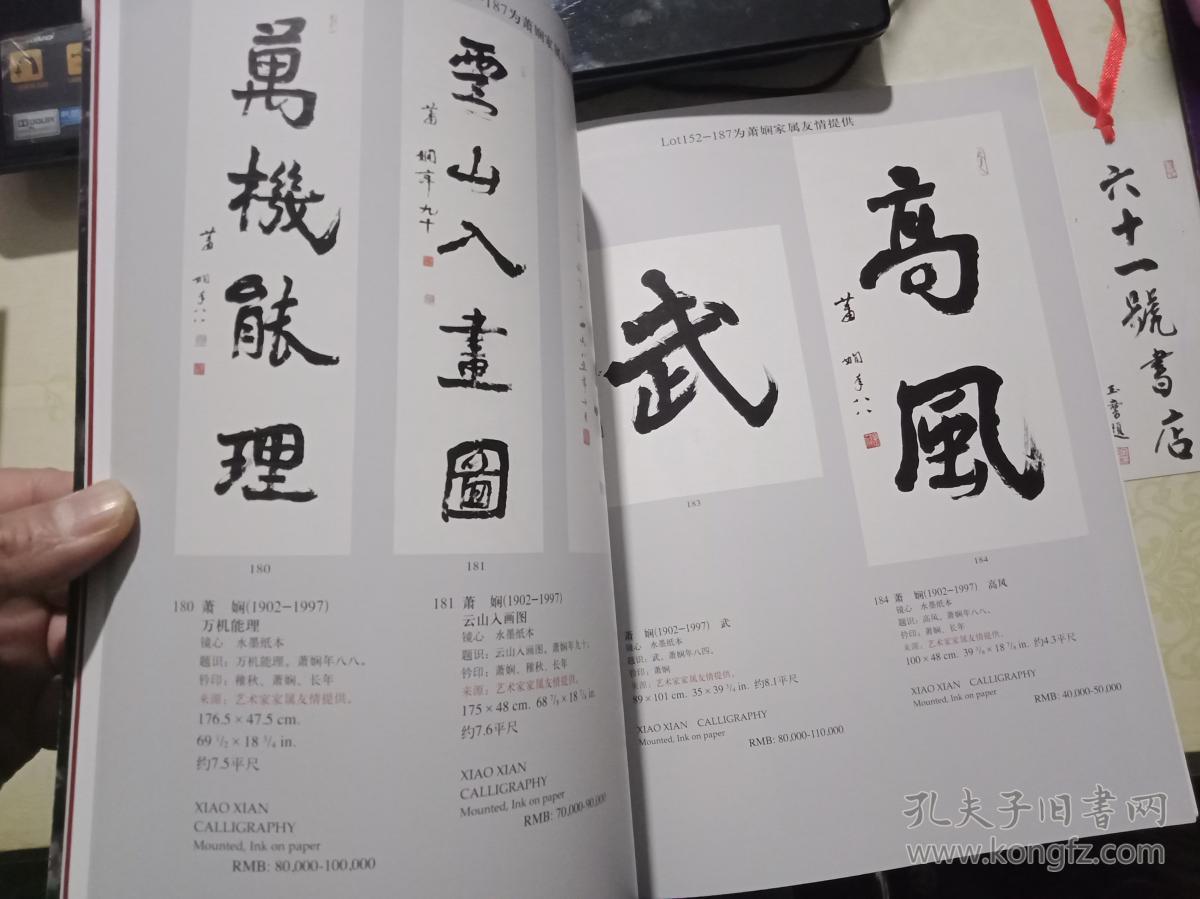 -187为萧娴家属
萬機能理
萧娴年八八
雲山入畫圖
萧娴年九十
180
181
180 萧 娴(1902-1997)
万机能理
镜心 水墨纸本
题识：万机能理，萧娴年八八。
钤印：稚秋、萧娴、长年
来源：艺术家家属友情提供。
176.5 × 47.5 cm.
69 1/2 × 18 3/4 in.
约7.5平尺
XIAO XIAN
CALLIGRAPHY
Mounted, Ink on paper
RMB: 80,000-100,000
181 萧 娴(1902-1997)
云山入画图
镜心 水墨纸本
题识：云山入画图，萧娴年九十。
钤印：萧娴、稚秋、长年
来源：艺术家家属友情提供。
175 × 48 cm. 68 7/8 × 18 7/8 in.
约7.6平尺
XIAO XIAN
CALLIGRAPHY
Mounted, Ink on paper
RMB: 70,000-90,000
Lot152-187为萧娴家属友情提供
武
183
高風
萧娴年八八
184
萧 娴(1902-1997) 武
镜心 水墨纸本
题识：武，萧娴年八四。
钤印：萧娴
来源：艺术家家属友情提供。
89 × 101 cm. 35 × 39 3/4 in. 约8.1平尺
XIAO XIAN CALLIGRAPHY
Mounted, Ink on paper
RMB: 80,000-110,000
184 萧 娴(1902-1997) 高风
镜心 水墨纸本
题识：高风，萧娴年八八。
钤印：萧娴、长年
来源：艺术家家属友情提供。
100 × 48 cm. 39 3/8 × 18 7/8 in. 约4.3平尺
XIAO XIAN CALLIGRAPHY
Mounted, Ink on paper
RMB: 40,000-50,000
六十一號書店
DOLBY
孔夫子旧书网
www.kongfz.com